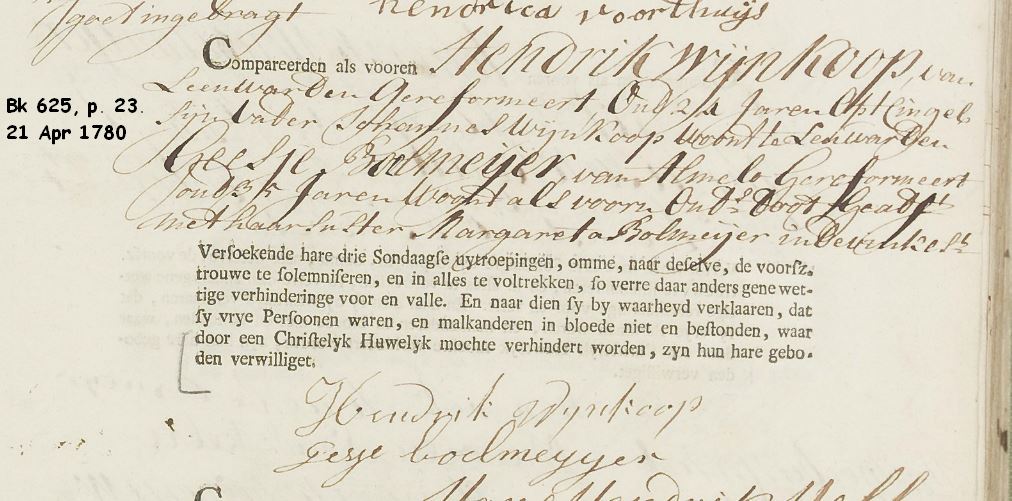 goet ingebragt Hendrica Voorthuijs
Compareerden als vooren Hendrik Wijnkoop, van
Leeuwarden Gereformeert Oud 24 Jaren Op t Cingel
Bk 625, p. 23.
21 Apr 1780
sijn Vader Johannes Wijnkoop woont te Leeuwarden
Geesje Bolmeijer van Almelo Gereformeert
oud 35 Jaren Woont als vooren Oud.s doot Geadst
met haar suster Margareta Bolmeijer in De
Verſoekende hare drie Sondaagſe uytroepingen, omme, naar deſelve, de voorſz.
trouwe te ſolemniſeren, en in alles te voltrekken, ſo verre daar anders gene wet-
tige verhinderinge voor en valle. En naar dien ſy by waarheyd verklaaren, dat
ſy vrye Perſoonen waren, en malkanderen in bloede niet en beſtonden, waar
door een Chriſtelyk Huwelyk mochte verhindert worden, zyn hun hare gebo-
den verwilliget.
Hendrik Wynkoop
gesje bolmeyyer